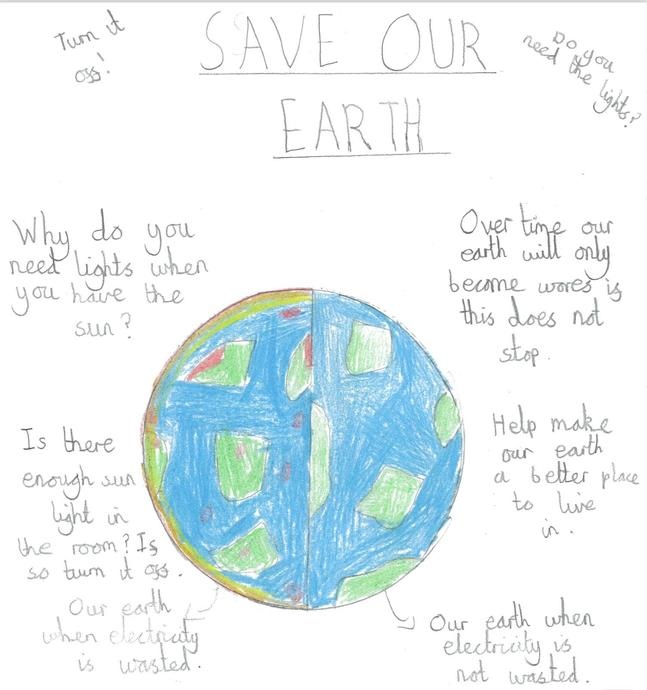 Turn it
off!
SAVE OUR
EARTH
Do you
need the
lights?
Why do you
need lights when
you have the
sun?
Over time our
earth will only
become wores if
this does not
stop.
Is there
enough sun
light in
the room? If
so turn it off.
Help make
our earth
a better place
to live
in.
Our earth
when electricity
is wasted.
Our earth when
electricity is
not wasted.